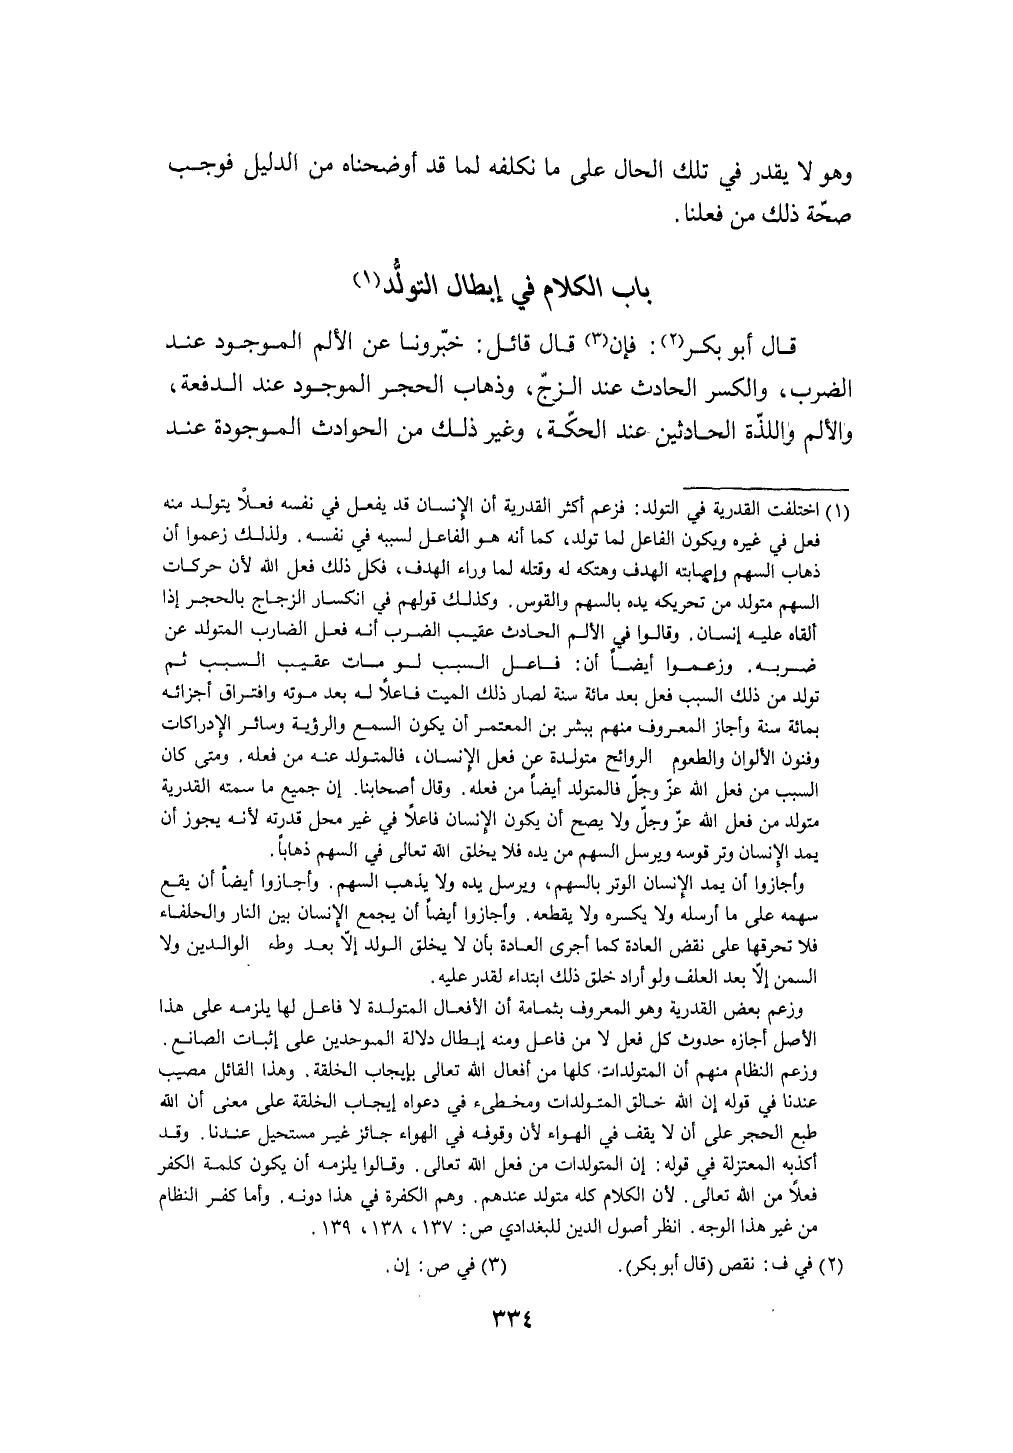 وهو لا يقدر في تلك الحال على ما نكلفه لما قد أوضحناه من الدليل فوجب
صحّة ذلك من فعلنا.
باب الكلام في إبطال التولُّد(١)
قال أبو بكر(٢): فإن(٣) قال قائل: خبّرونا عن الألم الموجود عند
الضرب، والكسر الحادث عند الزجّ، وذهاب الحجر الموجود عند الدفعة،
والألم واللذّة الحادثين عند الحكّة، وغير ذلك من الحوادث الموجودة عند
(١) اختلفت القدرية في التولد: فزعم أكثر القدرية أن الإنسان قد يفعل في نفسه فعلاً يتولد منه
فعل في غيره ويكون الفاعل لما تولد، كما أنه هو الفاعل لسببه في نفسه. ولذلك زعموا أن
ذهاب السهم وإصابته الهدف وهتكه له وقتله لما وراء الهدف، فكل ذلك فعل الله لأن حركات
السهم متولد من تحريكه يده بالسهم والقوس. وكذلك قولهم في انكسار الزجاج بالحجر إذا
ألقاه عليه إنسان. وقالوا في الألم الحادث عقيب الضرب أنه فعل الضارب المتولد عن
ضربه. وزعموا أيضاً أن: فاعل السبب لو مات عقيب السبب ثم
تولد من ذلك السبب فعل بعد مائة سنة لصار ذلك الميت فاعلاً له بعد موته وافتراق أجزائه
بمائة سنة وأجاز المعروف منهم ببشر بن المعتمر أن يكون السمع والرؤية وسائر الإدراكات
وفنون الألوان والطعوم الروائح متولدة عن فعل الإنسان، فالمتولد عنه من فعله. ومتى كان
السبب من فعل الله عزّ وجلّ فالمتولد أيضاً من فعله. وقال أصحابنا. إن جميع ما سمته القدرية
متولد من فعل الله عزّ وجلّ ولا يصح أن يكون الإنسان فاعلاً في غير محل قدرته لأنه يجوز أن
يمد الإنسان وتر قوسه ويرسل السهم من يده فلا يخلق الله تعالى في السهم ذهاباً.
وأجازوا أن يمد الإنسان الوتر بالسهم، ويرسل يده ولا يذهب السهم. وأجازوا أيضاً أن يقع
سهمه على ما أرسله ولا يكسره ولا يقطعه. وأجازوا أيضاً أن يجمع الإنسان بين النار والحلفاء
فلا تحرقها على نقض العادة كما أجرى العادة بأن لا يخلق الولد إلّا بعد وطء الوالدين ولا
السمن إلّا بعد العلف ولو أراد خلق ذلك ابتداء لقدر عليه.
وزعم بعض القدرية وهو المعروف بثمامة أن الأفعال المتولدة لا فاعل لها يلزمه على هذا
الأصل أجازه حدوث كل فعل لا من فاعل ومنه إبطال دلالة الموحدين على إثبات الصانع.
وزعم النظام منهم أن المتولدات كلها من أفعال الله تعالى بإيجاب الخلقة. وهذا القائل مصيب
عندنا في قوله إن الله خالق المتولدات ومخطىء في دعواه إيجاب الخلقة على معنى أن الله
طبع الحجر على أن لا يقف في الهواء لأن وقوفه في الهواء جائز غير مستحيل عندنا. وقد
أكذبه المعتزلة في قوله: إن المتولدات من فعل الله تعالى. وقالوا يلزمه أن يكون كلمة الكفر
فعلاً من الله تعالى. لأن الكلام كله متولد عندهم. وهم الكفرة في هذا دونه. وأما كفر النظام
من غير هذا الوجه. انظر أصول الدين للبغدادي ص: ١٣٧، ١٣٨، ١٣٩.
(٢) في ف: نقص (قال أبو بكر). (٣) في ص: إن.
٣٣٤